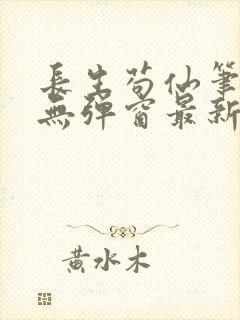 長生苟仙筆
無彈窗最新
黃水木